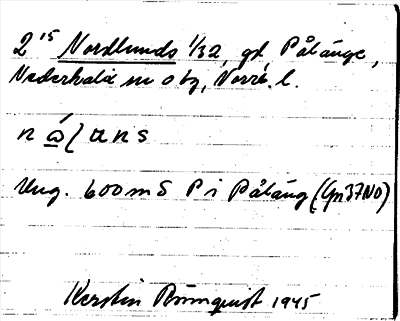 2¹⁵ Nordlunds 1/32, gd, Pålänge,
Nederkalix sn o tg, Norrb. l.
Ung. 600 m S P i Påläng (Gn37NO)
Kerstin Brömquist 1945